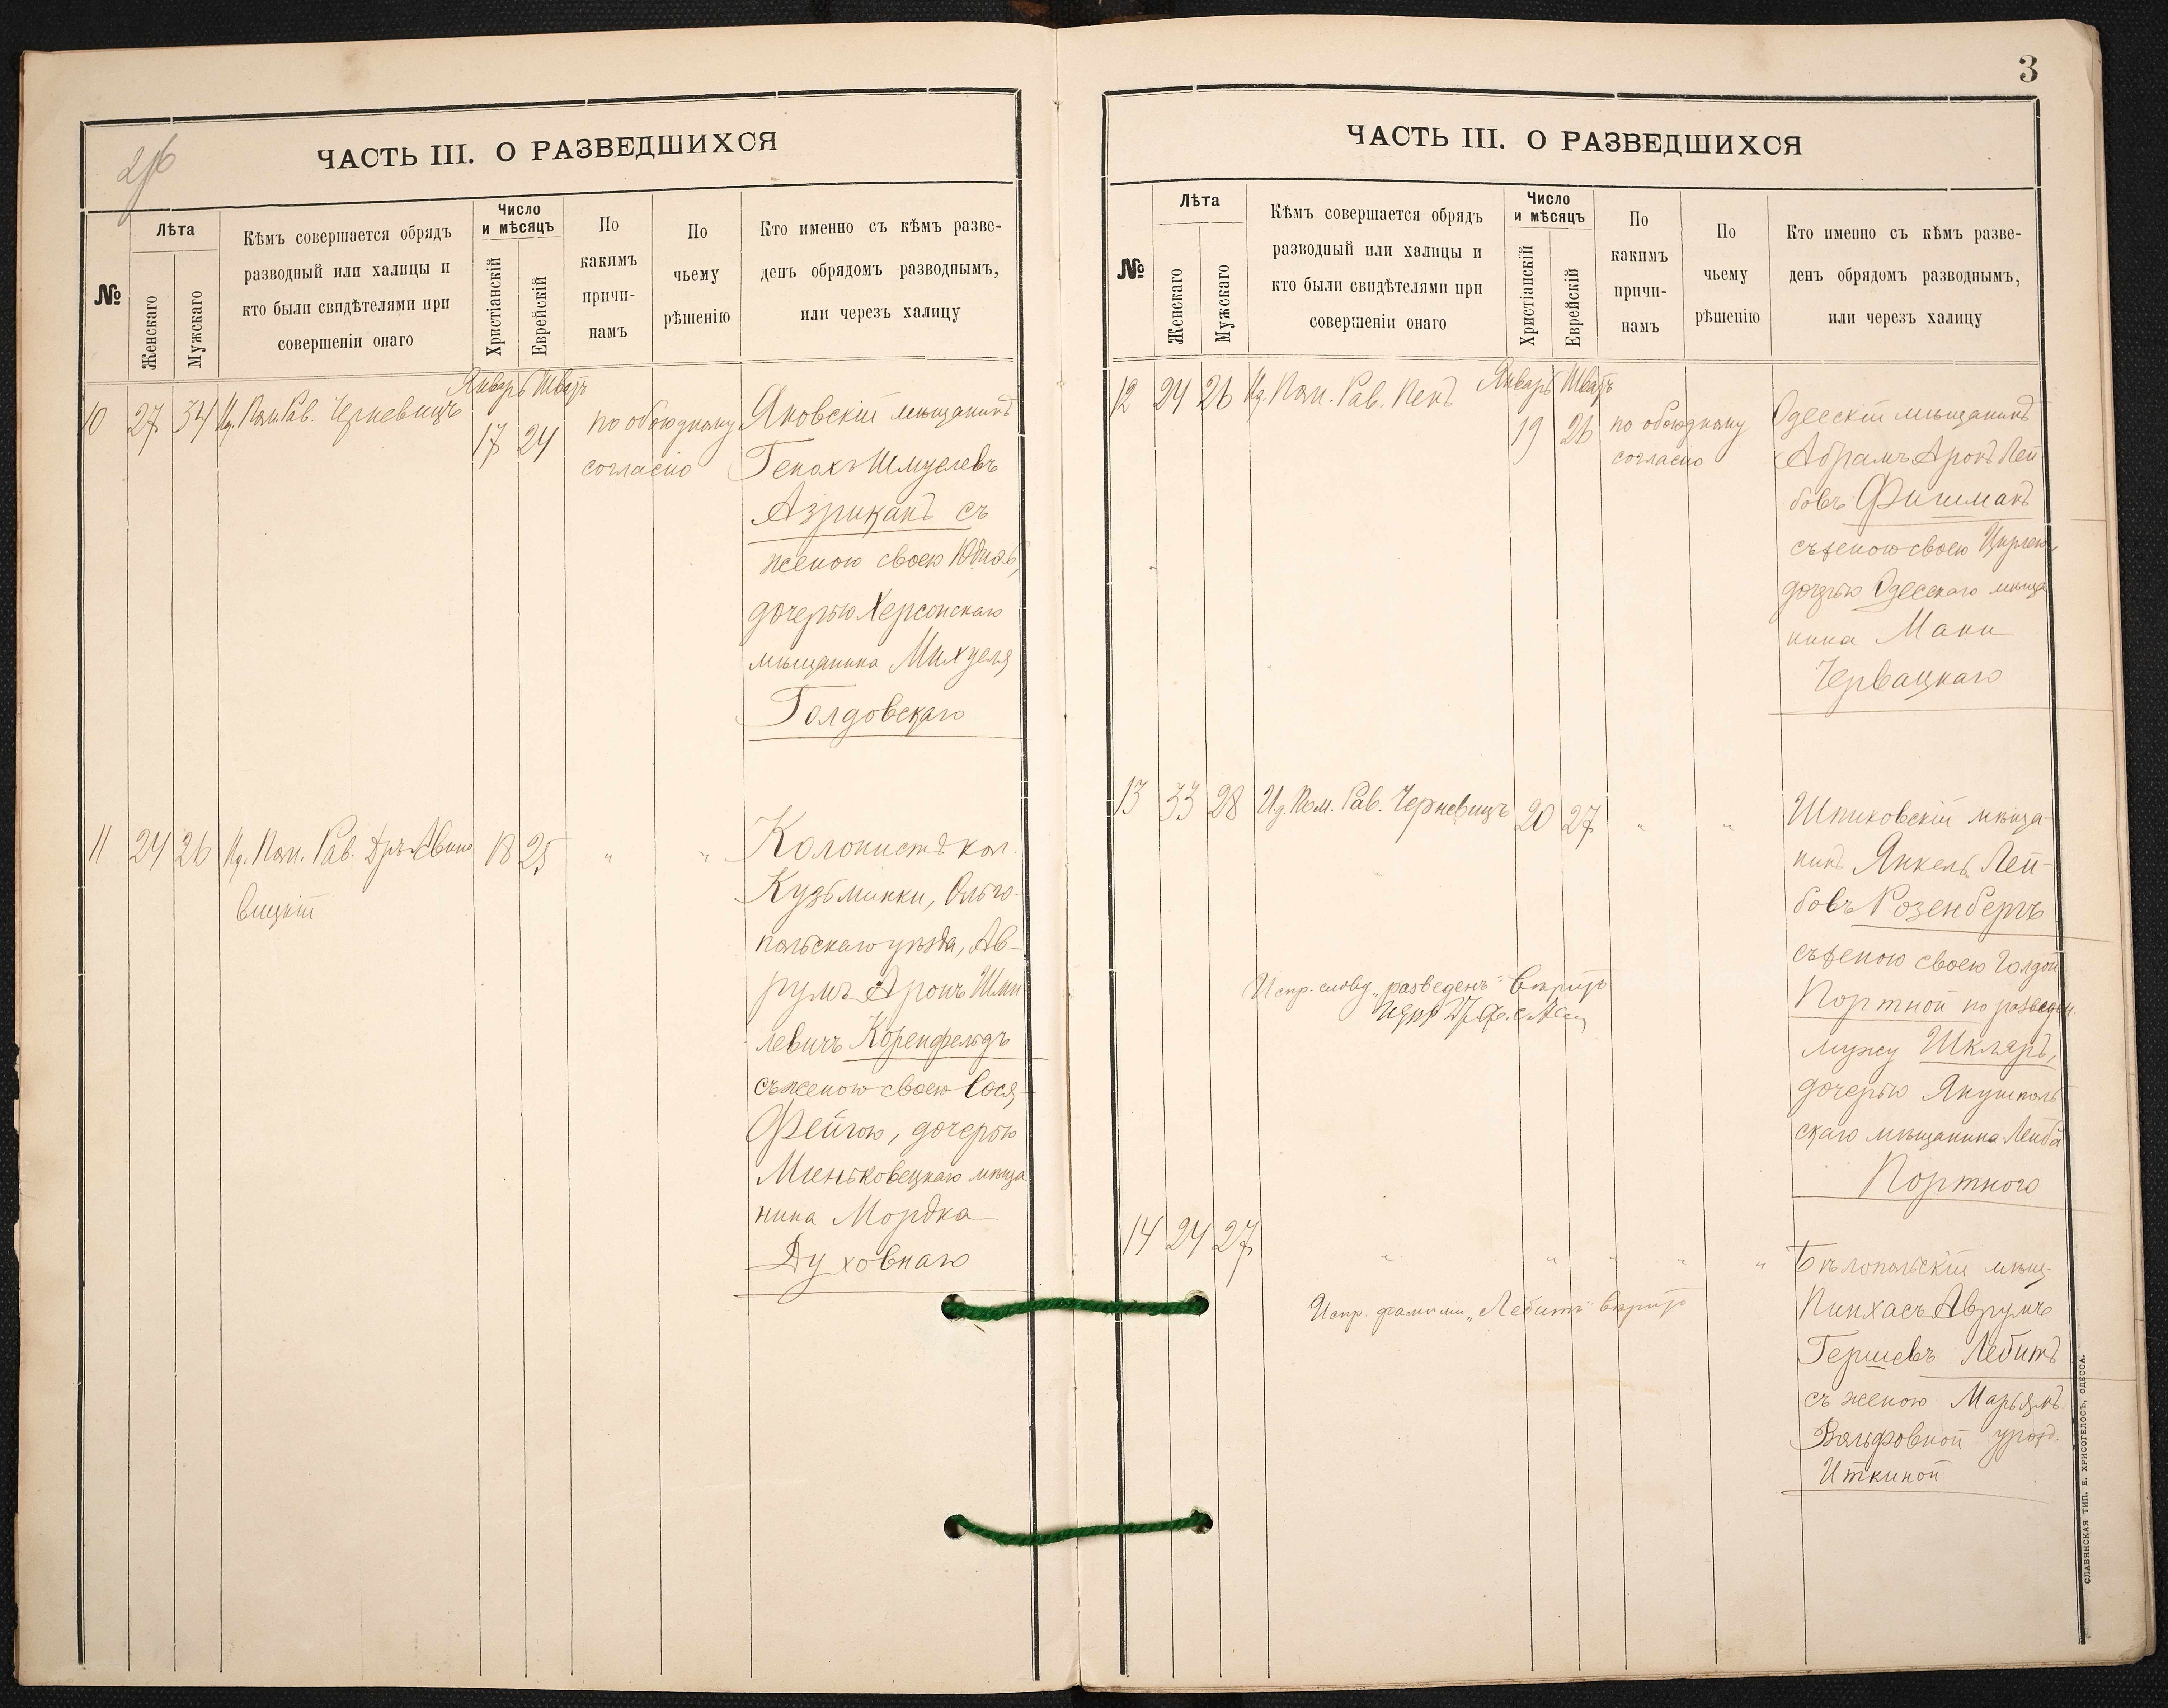 216
ЧАСТЬ III. О РАЗВЕДШИХСЯ
№
Лѣта
Женскаго
Мужскаго
Кѣмъ совершается обрядъ
разводный или халицы и
кто были свидѣтелями при
совершеніи онаго
Число
и мѣсяцъ
Христіанскій
Еврейскій
По
какимъ
причи-
намъ
По
чьему
рѣшенію
Кто именно съ кѣмъ разве-
денъ обрядомъ разводнымъ,
или через халицу
Январь Шватъ
10 27 34 Ид. Пом. Рав. Черневицъ 17 24
по обоюдному
согласію
Яновскій мѣщанинъ
Генохъ Шмулевъ
Азриканъ съ
женою своею
дочерью Херсонскаго
мѣщанина Михуеля
Голдовскаго
11 24 26 Ид. Пом. Рав. Д-ръ Авино
вицкій
18 25 " "
Колонистъ кол.
Кузьминки, Ольго-
польскаго уѣзда, Ав-
румъ Аронъ Шми
левичъ Коренфельдъ
съ женою своею Сося-
Фейгою, дочерью
Миньковецкаго мѣща
нина Мордка
Духовнаго
3
ЧАСТЬ III. О РАЗВЕДШИХСЯ
№
Лѣта
Женскаго
Мужскаго
Кѣмъ совершается обрядъ
разводный или халицы и
кто были свидѣтелями при
совершеніи онаго
Число
и мѣсяцъ
Христіанскій
Еврейскій
По
какимъ
причи-
намъ
По
чьему
рѣшенію
Кто именно съ кѣмъ разве-
денъ обрядомъ разводнымъ,
или через халицу
Январь Шватъ
12 24 26 Ид. Пом. Рав. Пенъ 19 26
по обоюдному
согласію
Одесскій мѣщанинъ
Абрамъ Аронъ Лей
бовъ Фишманъ
съ женою своею Цирлею,
дочерью Одесскаго мѣща
нина Мани
Червацкаго
13 33 28 Ид. Пом. Рав. Черневицъ 20 27 " "
Шпиковскій мѣща-
нинъ Янкель Лей-
бовъ Розенбергъ
съ женою своею Голдой
Портной по разведен.
мужу Шкляръ,
дочерью Якушполь
скаго мѣщанина Лейба
Портного
Испр. слову "разведенъ" вѣрить
14 24 27 " " " " "
Бѣлопольскій мѣщ.
Пинхасъ Аврумъ
Гершевъ Лебитъ
съ женою Марьямъ
Вольфовной урожд.
Иткиной
Испр. фамиліи "Лебитъ" вѣрить
СЛАВЯНСКАЯ ТИП. Е. ХРИСОГЕЛОСЪ, ОДЕССА.